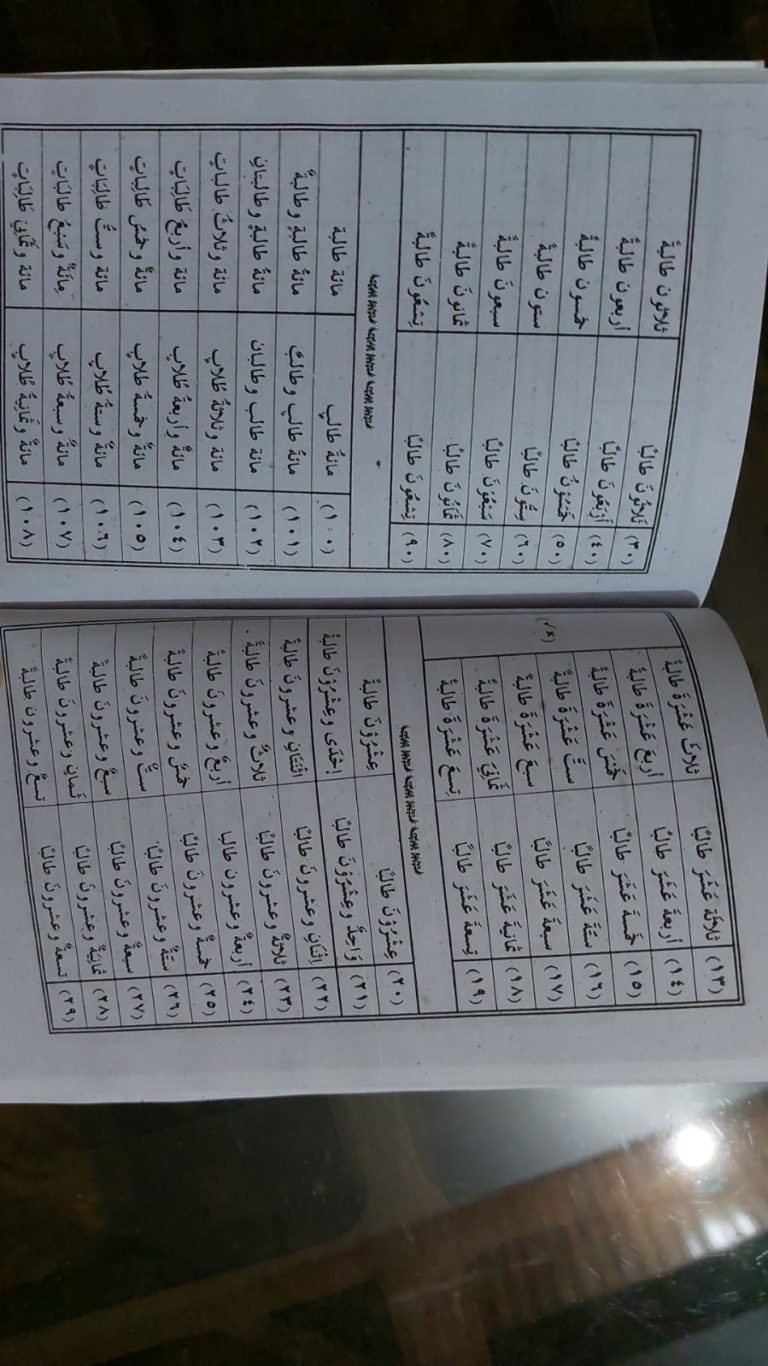 (١٣) ثلاثَةَ عَشَرَ طالبًا ثلاثَ عَشْرَةَ طالبةً
(١٤) أربعةَ عَشَرَ طالبًا أربعَ عَشْرَةَ طالبةً
(١٥) خَمْسَةَ عَشَرَ طالبًا خَمْسَ عَشْرَةَ طالبةً
(١٦) ستّةَ عَشَرَ طالبًا ستَّ عَشْرَةَ طالبةً
(١٧) سبعةَ عَشَرَ طالبًا سبعَ عَشْرَةَ طالبةً
(١٨) ثمانيةَ عَشَرَ طالبًا ثَمَانِيَ عَشْرَةَ طالبةً
(١٩) تِسعةَ عَشَرَ طالبًا تِسعَ عَشْرَةَ طالبةً
(٢٠) عِشْرُونَ طَالبًا عِشْرُوْنَ طَالبةً
(٢١) وَاحِدٌ وعِشْرُوْنَ طَالبًا إحْدَى وعِشْرُوْنَ طالبةً
(٢٢) اِثْنَانِ وعشرونَ طالبًا اثْنَتَانِ وعشرونَ طالبةً
(٢٣) ثلاثةٌ وعشرونَ طالبًا ثلاثٌ وعشرونَ طالبةً
(٢٤) أربعةٌ وعشرون طالبا أربعٌ وعشرونَ طالبةً
(٢٥) خمسةٌ وعشرونَ طالبًا خمسٌ وعشرونَ طالبةً
(٢٦) ستّةٌ وعشرونَ طالبًا ستٌّ وعشرونَ طالبةً
(٢٧) سبعةٌ وعشرونَ طالبًا سبعٌ وعشرونَ طالبةً
(٢٨) ثمانيةٌ وعشرونَ طالبًا ثمانٍ وعشرونَ طالبةً
(٢٩) تسعةٌ وعشرونَ طالبًا تسعٌ وعشرونَ طالبةً
(٣٠) ثَلاثُوْنَ طالبًا ثلاثون طالبةً
(٤٠) أرْبَعُوْنَ طالبًا أربعون طالبةً
(٥٠) خَمْسُوْنَ طالبًا خمسون طالبةً
(٦٠) سِتُّونَ طالبًا ستون طالبةً
(٧٠) سَبْعُوْنَ طالبًا سبعونَ طالبةً
(٨٠) ثَمَانُوْنَ طالبًا ثمانونَ طالبةً
(٩٠) تِسْعُوْنَ طالبًا تِسْعُونَ طالبةً
(١٠٠) مائةُ طالبٍ مائة طالبة
(١٠١) مائةُ طالبٍ وطالبٌ مائةُ طالبةٍ وطالبةٌ
(١٠٢) مائة طالب وطالبان مائةُ طالبةٍ وطالبتانِ
(١٠٣) مائة وثلاثةُ طُلابٍ مائة وثلاثُ طالباتٍ
(١٠٤) مائةٌ وأربعةُ طُلابٍ مائة وأربعُ طَالِبَاتٍ
(١٠٥) مائةٌ وخمسةُ طلابٍ مائةٌ وخمسُ طَالِبَاتٍ
(١٠٦) مائةٌ وستةُ طُلابٍ مائة وستُّ طَالِبَاتٍ
(١٠٧) مائةٌ وسبعةُ طُلابٍ مِائَةٌ وسَبْعُ طَالبَاتٍ
(١٠٨) مائةٌ وثَمَانِيَةُ طُلابٍ مائة وثَمَانِي طَالِبَاتٍ